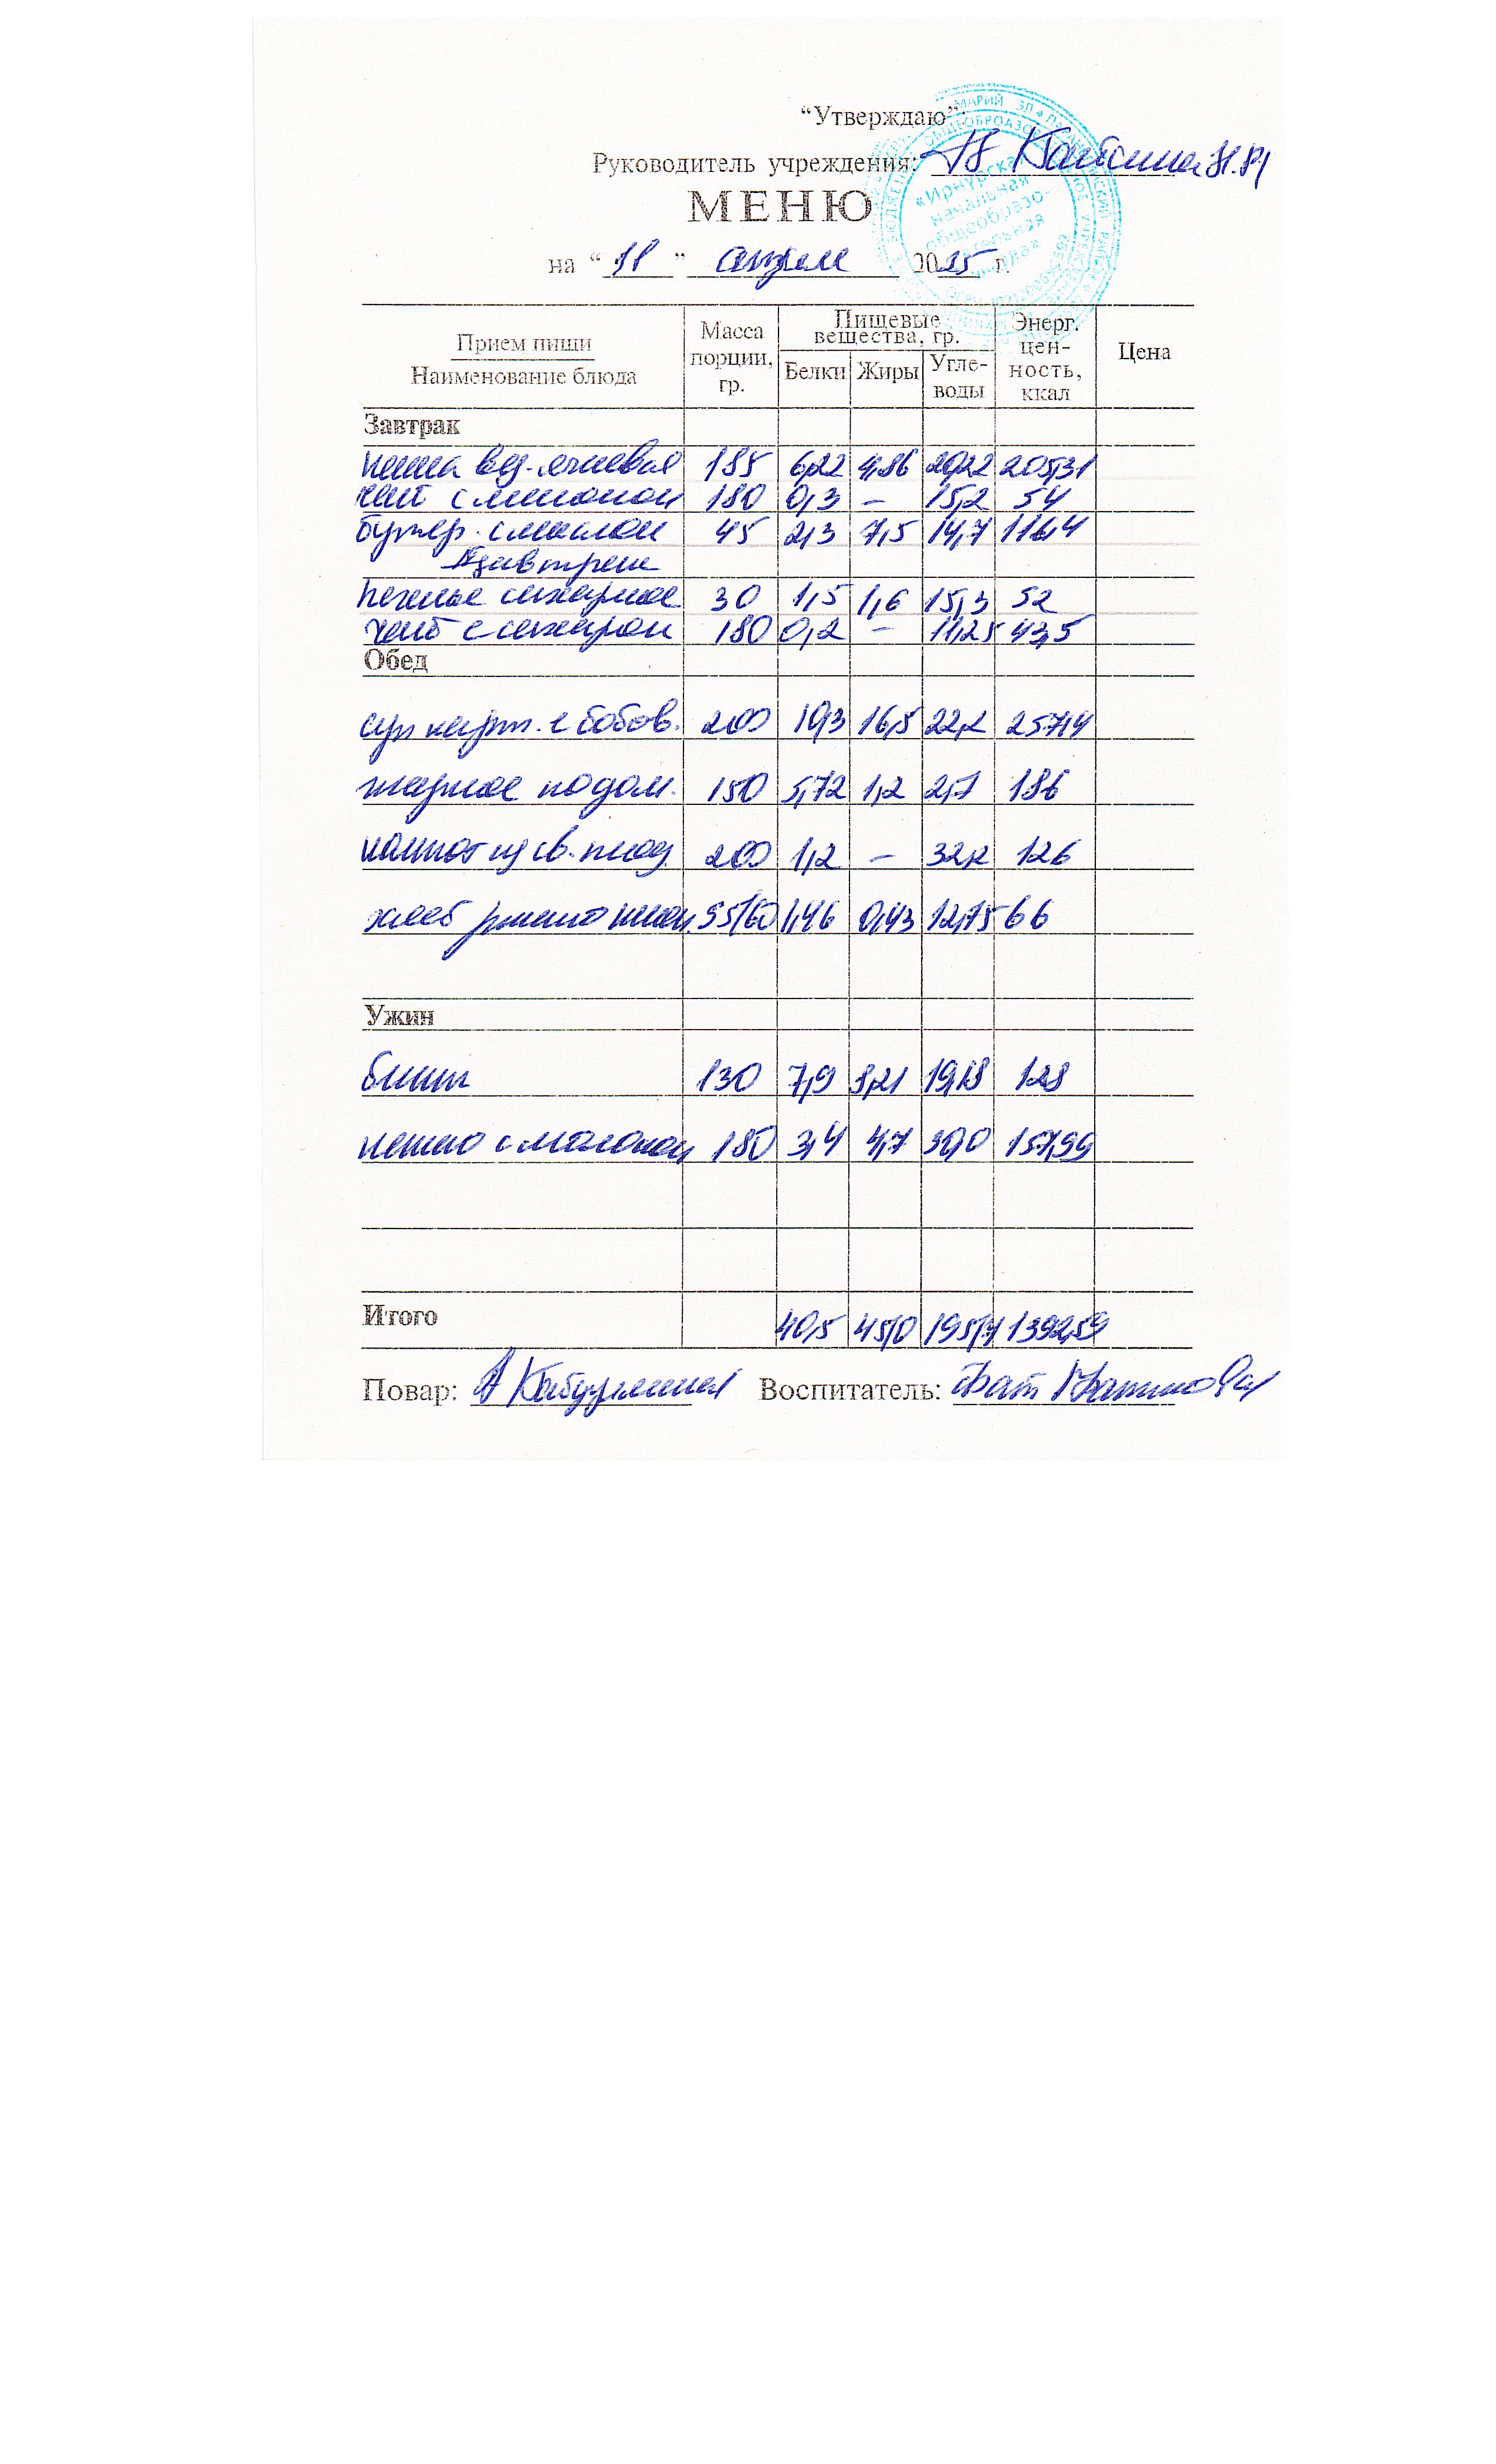 “Утверждаю”:
Руководитель учреждения:
МЕНЮ
на “ ” апреля 2025 г.
«Ирнурская
начальная
общеобразо-
вательная
школа»
Прием пищи
Наименование блюда
Масса порции, гр.
Пищевые вещества, гр.
Белки Жиры Угле- воды
Энерг. цен- ность, ккал
Цена
Завтрак
каша вяз. ячневая 185 6,22 4,86 29,22 205,31
чай с лимоном 180 0,3 – 15,2 54
бутер. с маслом 45 2,3 7,5 14,7 116,4
II завтрак
печенье сахарное 30 1,5 1,6 15,3 52
чай с сахаром 180 0,2 – 11,25 43,5
Обед
суп карт. с бобов. 200 10,3 16,5 22,2 257,4
жаркое по дом. 150 5,72 1,2 2,7 186
компот из св. плод. 200 1,2 – 32,2 126
хлеб ржано 1,46 0,43 12,75 66
Ужин
130 7,9 8,21 19,18 128
молоком 180 3,4 4,7 30,0 157,99
Итого 40,5 45,0 195,7 1392,59
Повар: Воспитатель: